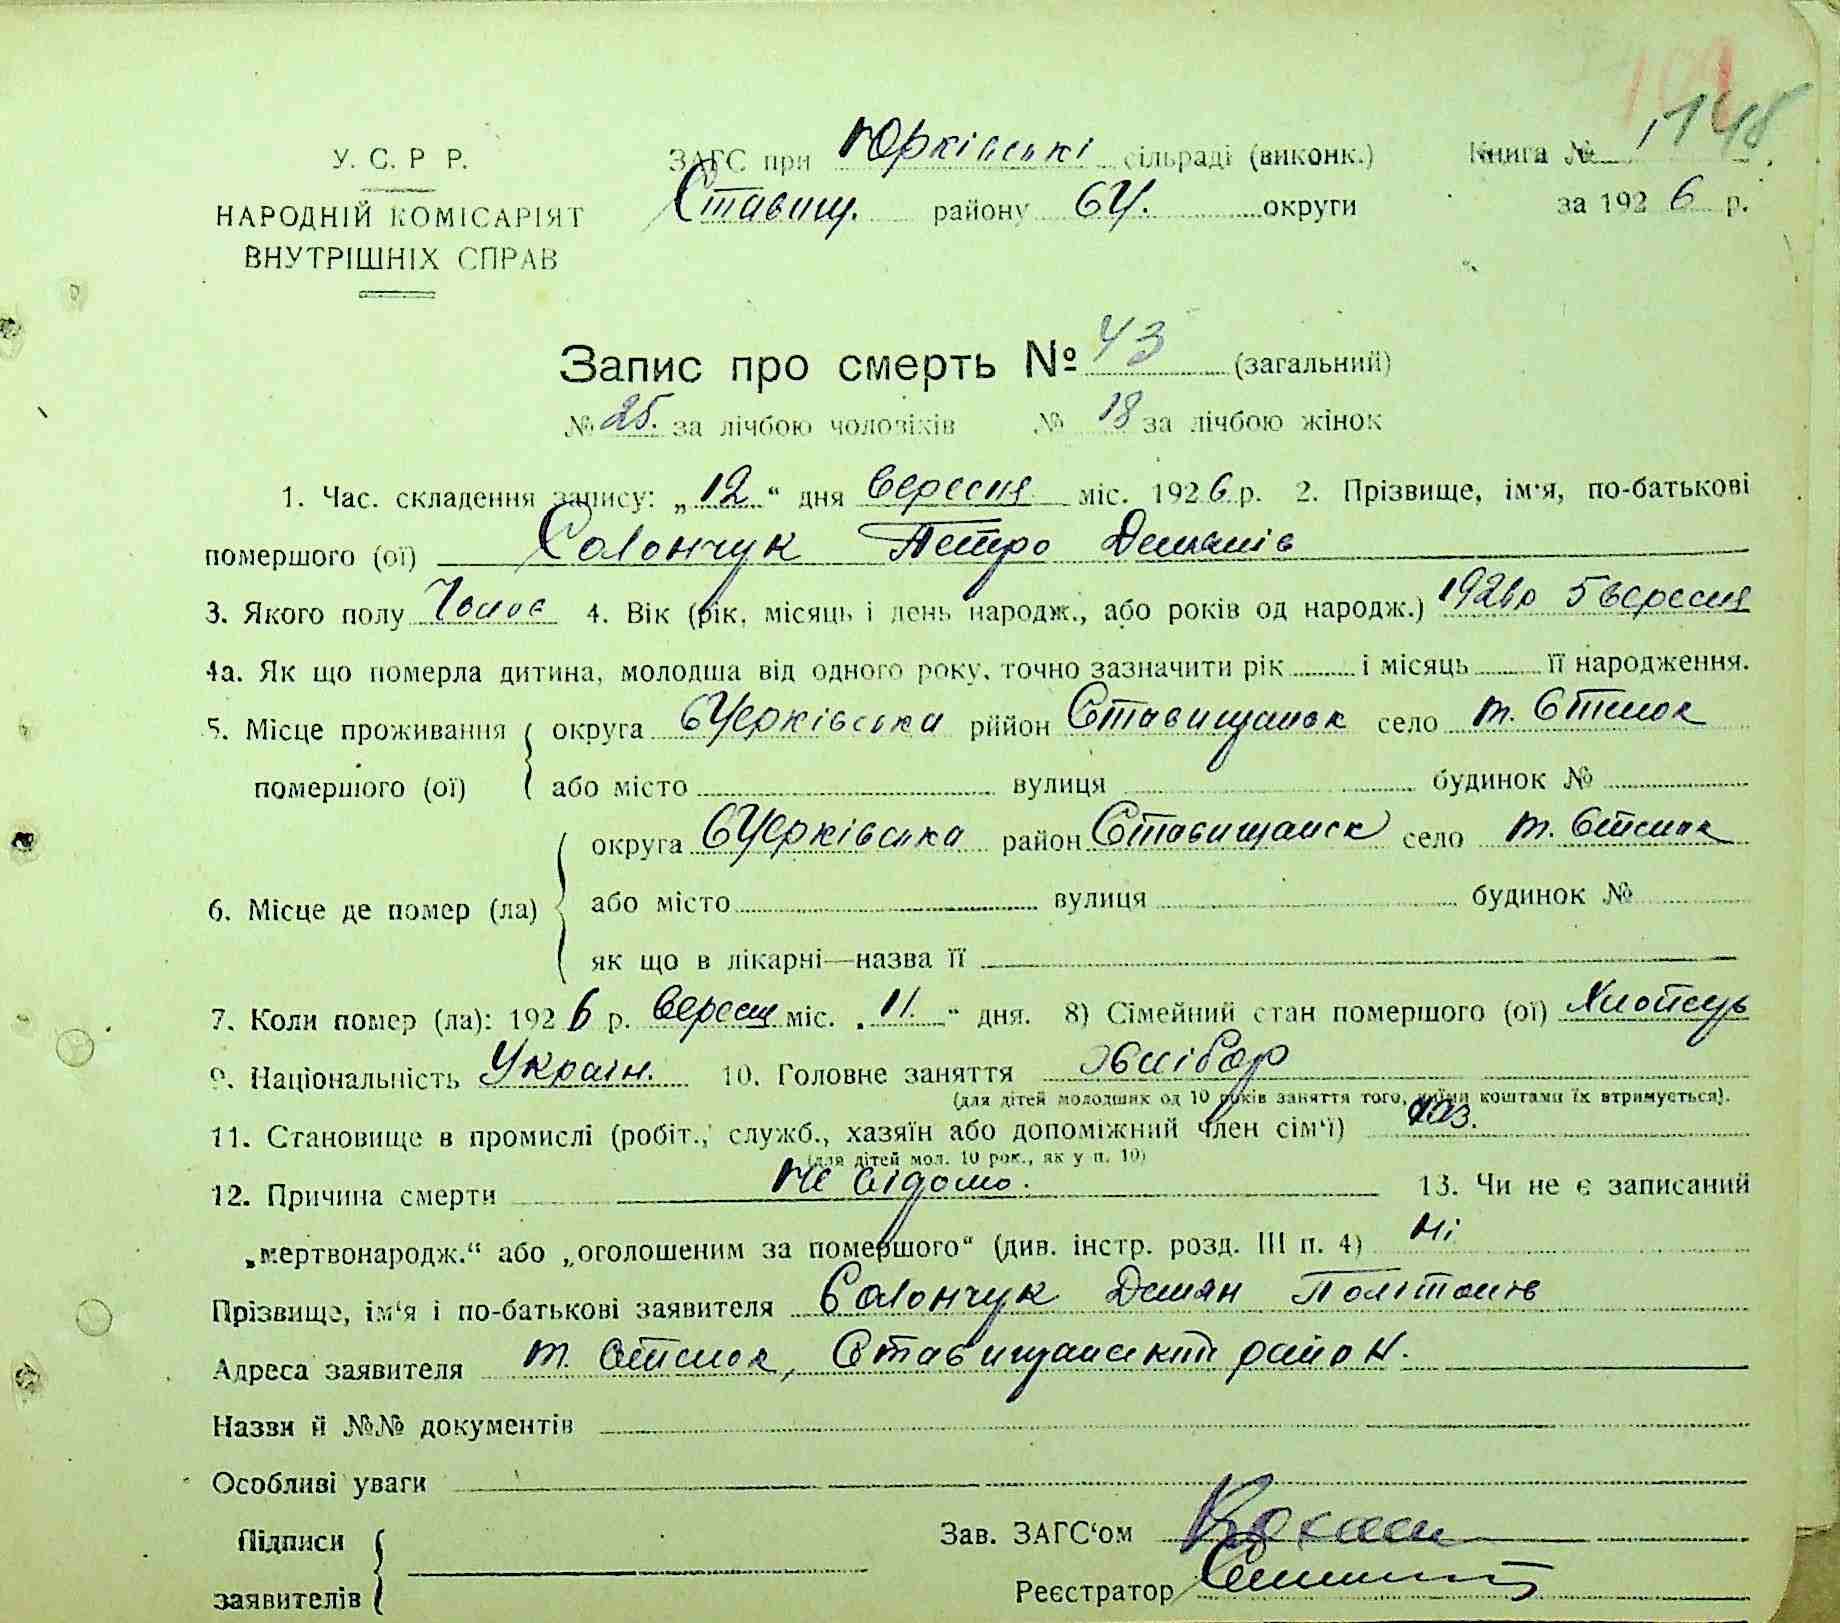 148
У. С. Р Р.
НАРОДНІЙ КОМІСАРІЯТ
ВНУТРІШНІХ СПРАВ
ЗАГС при Юрківські сільраді (виконк.)
Книга № 1
Ставищ. району БЦ. округи
за 1926 р.
Запис про смерть № 43 (загальний)
№ 25. за лічбою чоловіків № 18 за лічбою жінок
1. Час. складення запису: „12“ дня вересня міс. 1926 р. 2. Прізвище, ім'я, по-батькові
помершого (ої) Солончук Петро Демянів
3. Якого полу 4. Вік (рік, місяць і день народж., або років од народж.) 1926 р 5 вересня
4а. Як що померла дитина, молодша від одного року, точно зазначити рік і місяць її народження.
5. Місце проживання помершого (ої)
округа БЦерківська рййон Ставищанск село
або місто вулиця будинок №
6. Місце де помер (ла)
округа БЦерківська район Ставищанск село
або місто вулиця будинок №
як що в лікарні—назва її
7. Коли помер (ла): 1926 р. вересня міс. „11.“ дня. 8) Сімейний стан помершого (ої) Хлопець
9. Національність Україн. 10. Головне заняття Хлібор
(для дітей молодших од 10 років заняття того, чиїми коштами їх втримується).
11. Становище в промислі (робіт., служб., хазяїн або допоміжний член сім'ї) хаз.
(для дітей мол. 10 рок., як у п. 10)
12. Причина смерти не відомо. 13. Чи не є записаний
„мертвонародж.“ або „оголошеним за помершого“ (див. інстр. розд. III п. 4) ні
Прізвище, ім'я і по-батькові заявителя Солончук Демян
Адреса заявителя Ставищанский район.
Назви й №№ документів
Особливі уваги
Підписи
заявителів
Зав. ЗАГС'ом
Реєстратор